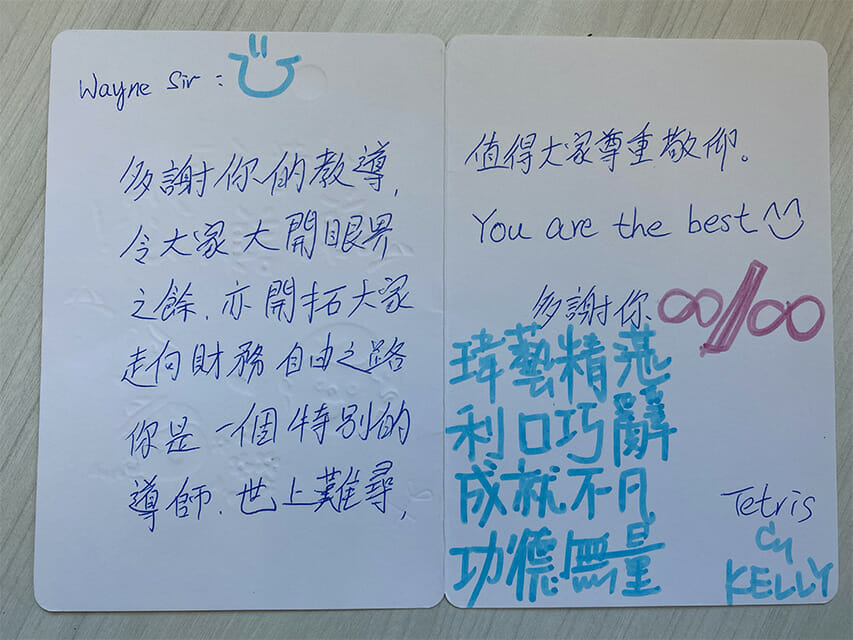 Wayne Sir :
多謝你的教導,
令大家大開眼界
之餘,亦開拓大家
走向財務自由之路
你是一個特別的
導師,世上難尋,
值得大家尊重敬仰。
You are the best
多謝你 100/100
瑋藝精湛
利口巧辭
成就不凡
功德無量
Tetris
KELLY